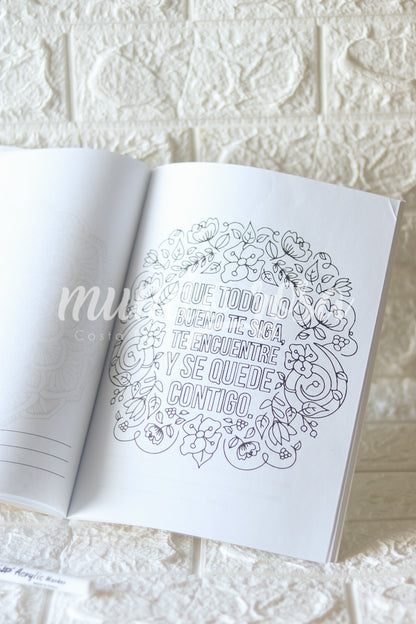 QUE TODO LO
BUENO TE SIGA,
TE ENCUENTRE
Y SE QUEDE
CONTIGO.
Costa
Acrylic Marker